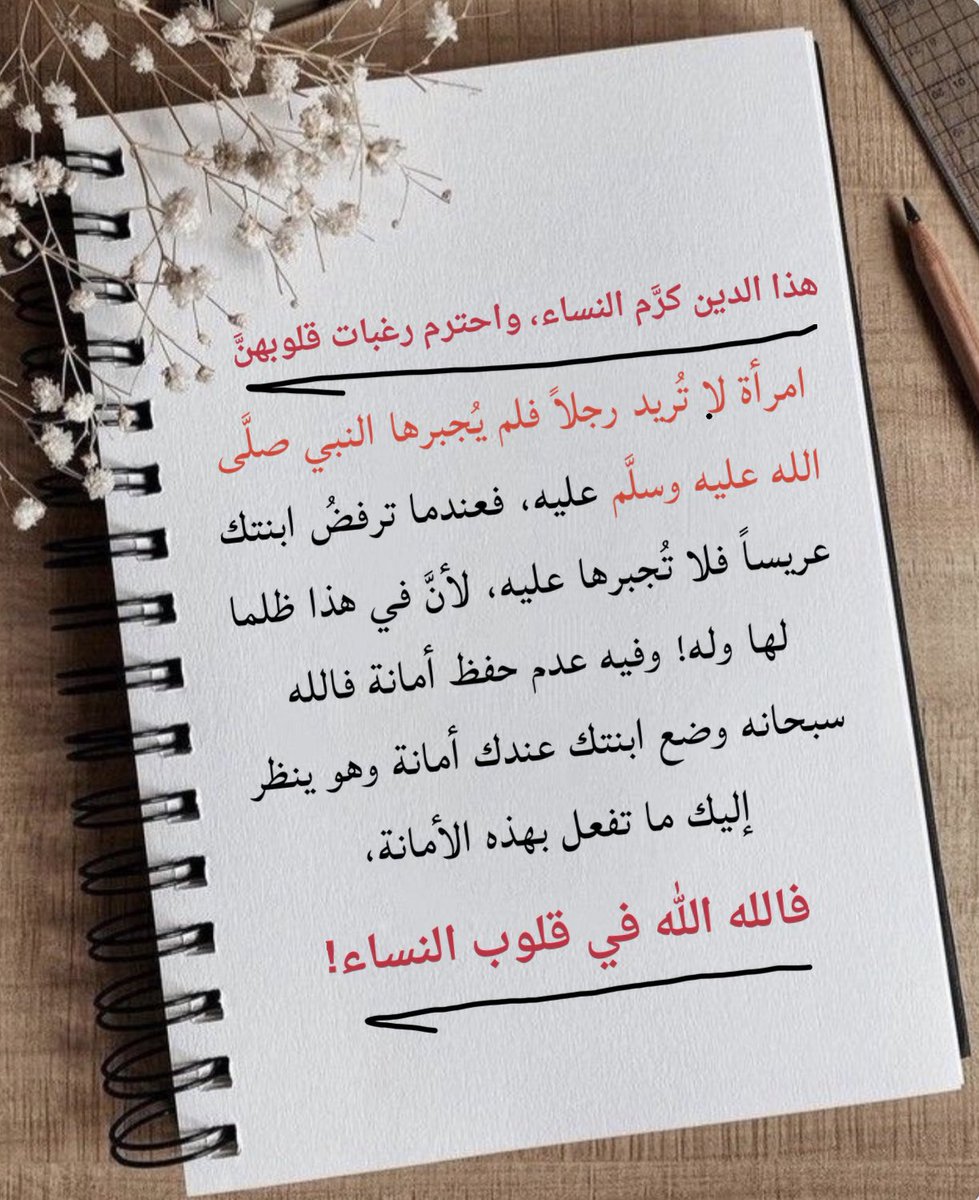 هذا الدين كرَّم النساء، واحترم رغبات قلوبهنَّ
امرأة لا تُريد رجلاً فلم يُجبرها النبي صلَّى
الله عليه وسلَّم عليه، فعندما ترفضُ ابنتك
عريساً فلا تُجبرها عليه، لأنَّ في هذا ظلما
لها وله! وفيه عدم حفظ أمانة فالله
سبحانه وضع ابنتك عندك أمانة وهو ينظر
إليك ما تفعل بهذه الأمانة،
فالله الله في قلوب النساء!